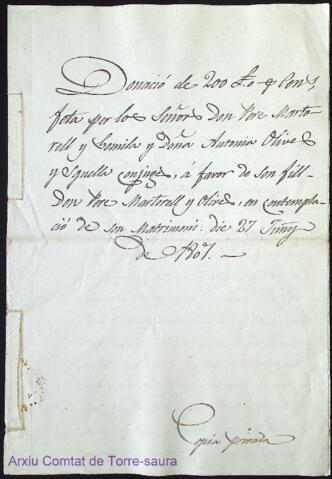 Donació de 200 £ e Cens,
feta per los Señors Don Pere Marto-
rell y Lamila y Doña Antonia Olives
y Squella conjuges, á favor de son fill
Don Pere Martorell y Olives, en contempla-
ció de son Matrimoni: die 27 Juny
de 1807.
Copia privada
Arxiu Comtat de Torre-saura